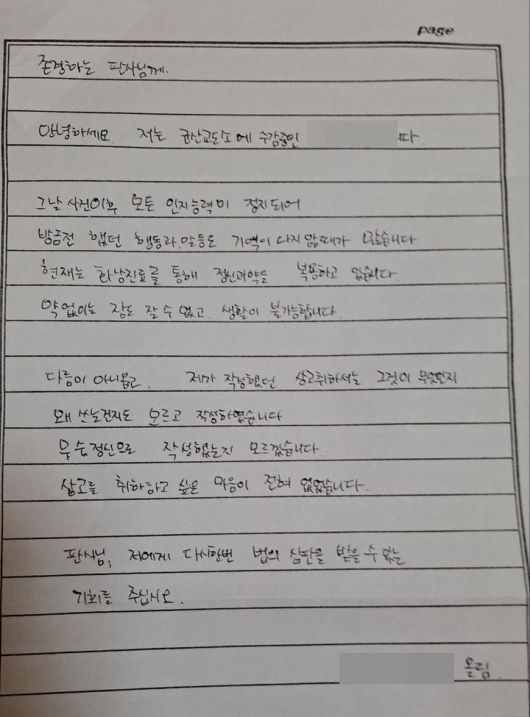 page
존경하는 판사님께.
안녕하세요 저는 군산교도소에 수감중인
그날 사건이후 모든 인지능력이 정지되어
방금전 했던 행동과 말들도 기억이 나지 않을때가 많습니다
현재는 화상진료를 통해 정신과약을 복용하고 있습니다.
약 없이는 잠도 잘 수 없고. 생활이 불가능합니다.
다름이 아니옵고. 제가 작성했던 상고취하서는 그것이 무엇인지
왜 쓰는건지도 모르고 작성하였습니다
무슨정신으로 작성했는지 모르겠습니다.
상고를 취하하고 싶은 마음이 전혀 없었습니다.
판사님, 저에게 다시한번 법의 심판을 받을 수 있는
기회를 주십시오.
올림.